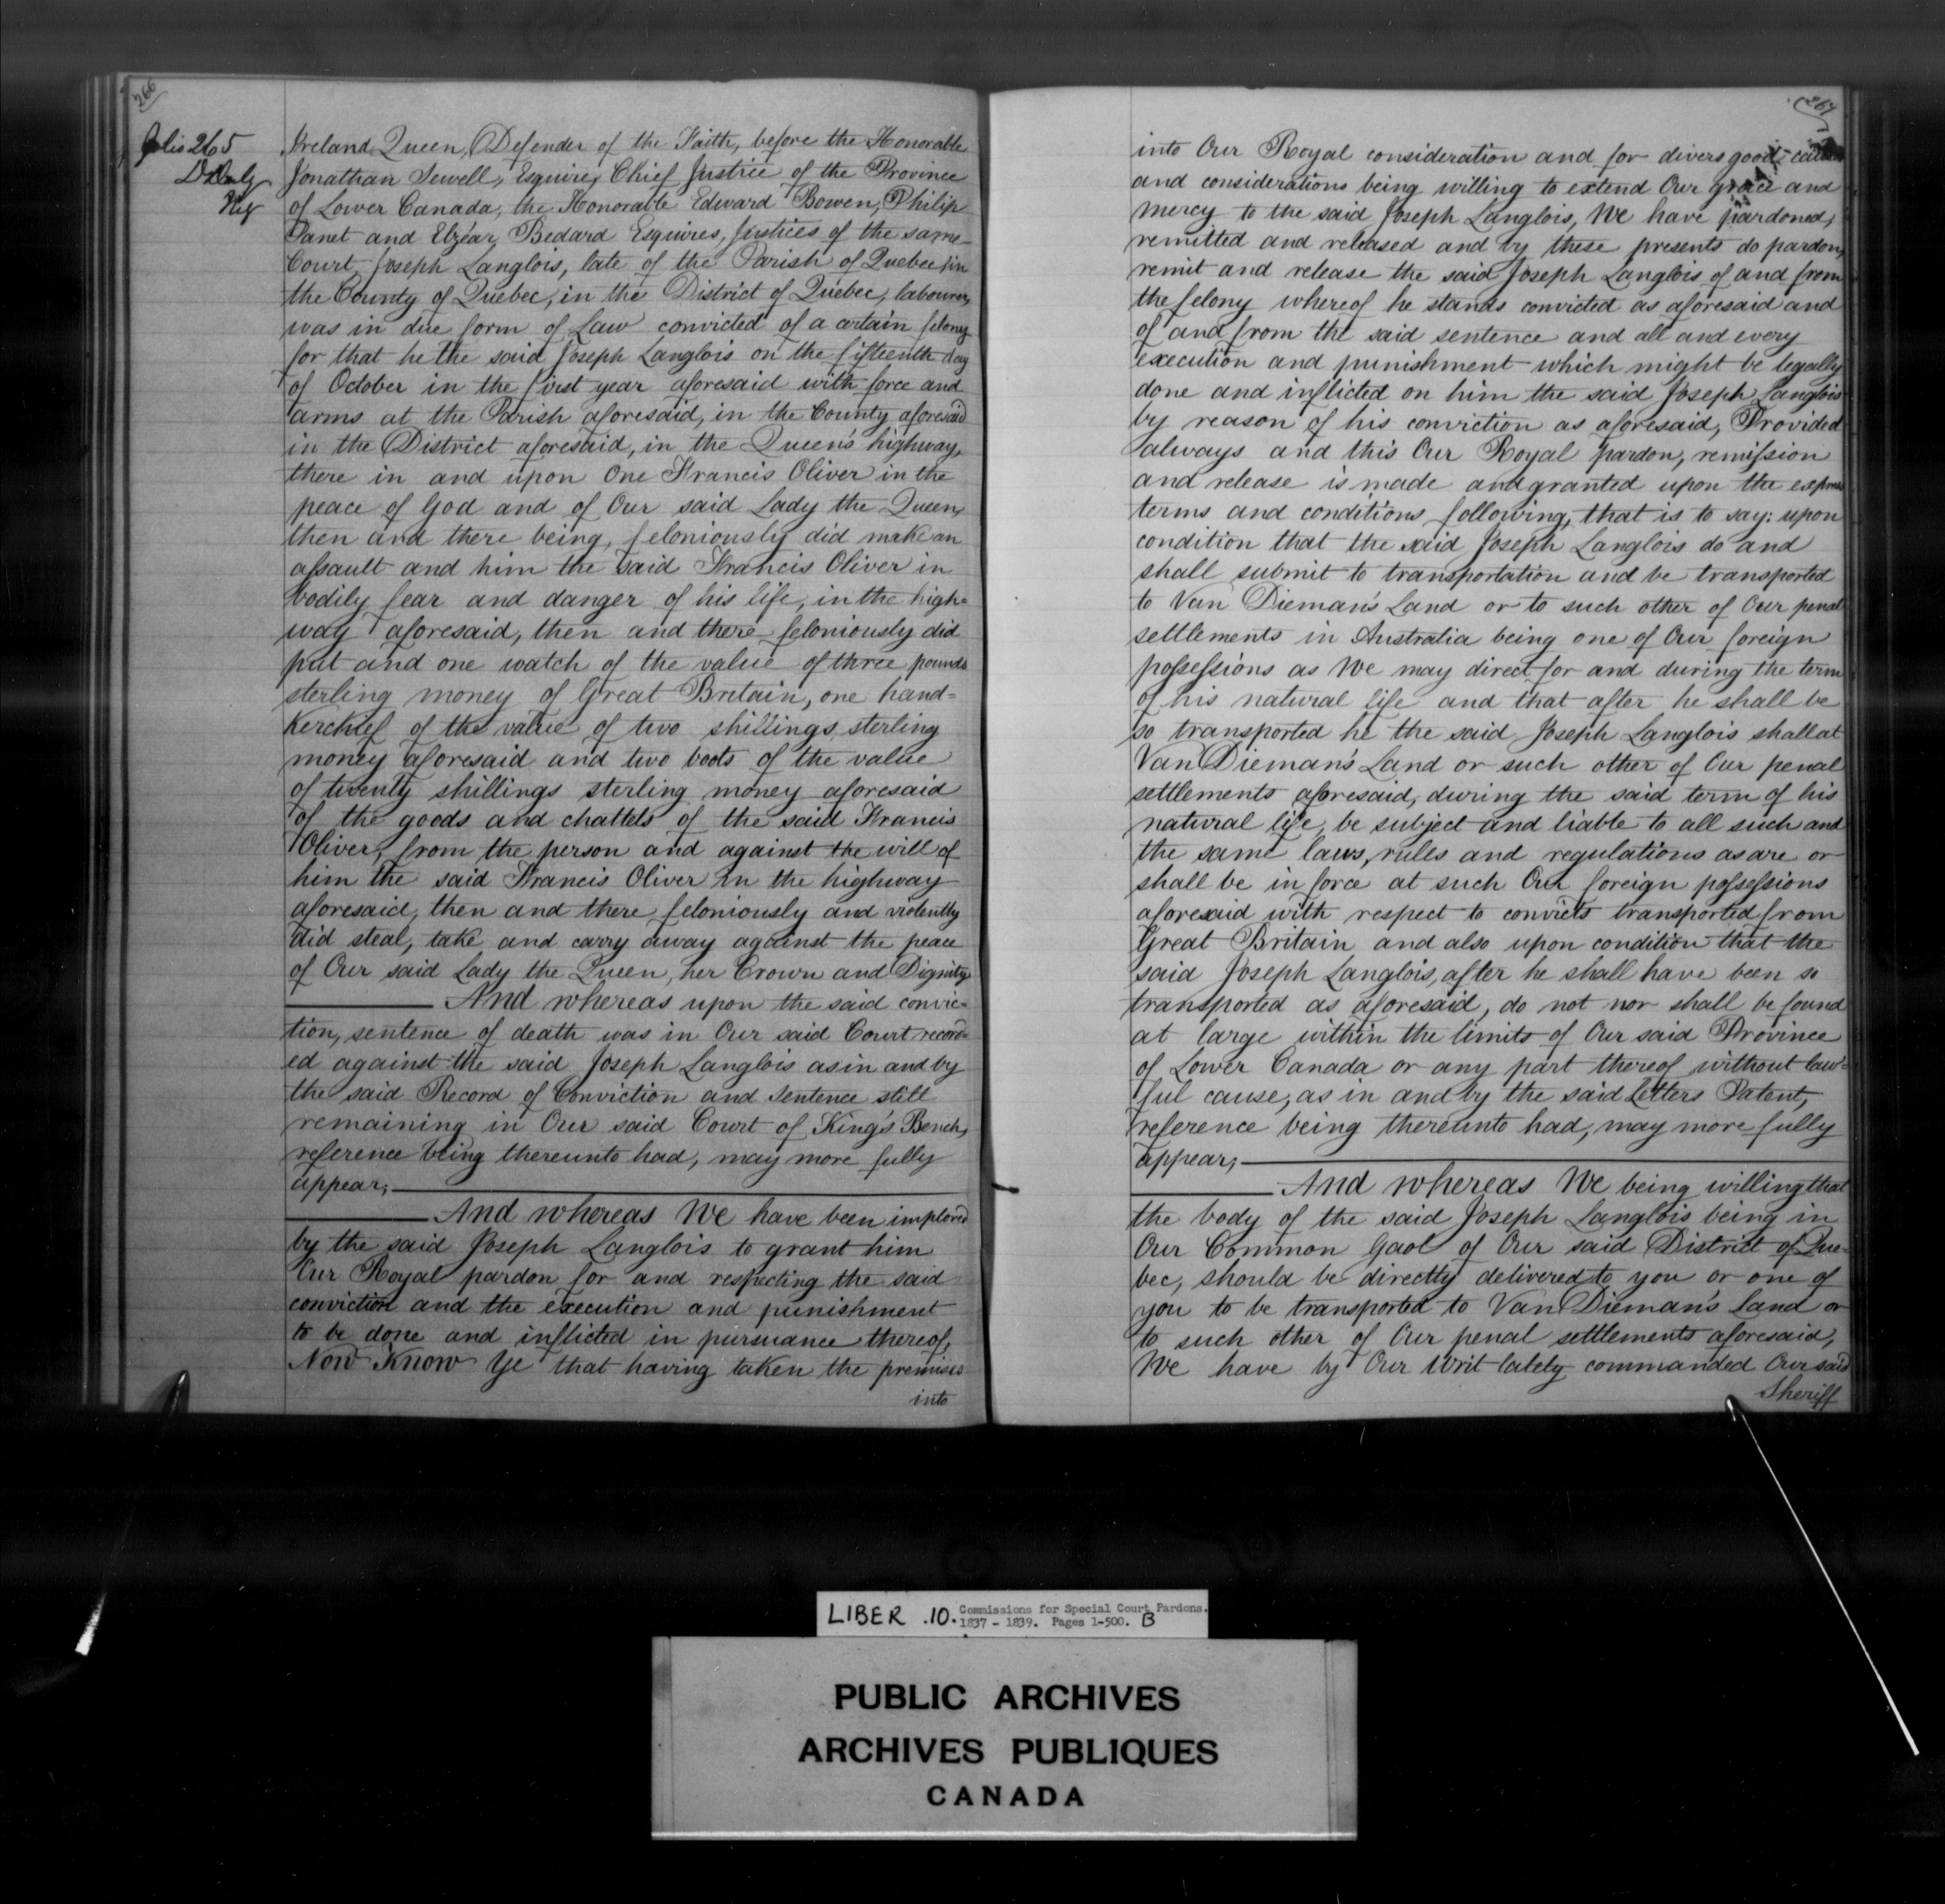 266
Folio 265
D Daly
Reg
Ireland Queen, Defender of the Faith, before the Honorable
Jonathan Sewell, Esquire, Chief Justice of the Province
of Lower Canada, the Honorable Edward Bowen, Philip
Panet and Elzéar Bedard Esquires, Justices of the same
Court, Joseph Langlois, late of the Parish of Quebec, in
the County of Quebec, in the District of Quebec, labourer,
was in due form of Law convicted of a certain felony
for that he the said Joseph Langlois on the fifteenth day
of October in the first year aforesaid with force and
arms at the Parish aforesaid, in the County aforesaid
in the District aforesaid, in the Queen's highway,
there in and upon One Francis Oliver in the
peace of God and of Our said Lady the Queen,
then and there being, feloniously did make an
assault and him the said Francis Oliver in
bodily fear and danger of his life, in the high=
way aforesaid, then and there feloniously did
put and one watch of the value of three pounds
sterling money of Great Britain, one hand=
kerchief of the value of two shillings sterling
money aforesaid and two boots of the value
of twenty shillings sterling money aforesaid
of the goods and chattels of the said Francis
Oliver, from the person and against the will of
him the said Francis Oliver in the highway
aforesaid, then and there feloniously and violently
did steal, take and carry away against the peace
of Our said Lady the Queen, her Crown and Dignity
And whereas upon the said convic=
tion, sentence of death was in Our said Court record=
ed against the said Joseph Langlois as in and by
the said Record of Conviction and sentence still
remaining in Our said Court of King's Bench,
reference being thereunto had, may more fully
appear;
And whereas We have been implored
by the said Joseph Langlois to grant him
Our Royal pardon for and respecting the said
conviction and the execution and punishment
to be done and inflicted in pursuance thereof,
Now Know Ye that having taken the premises
into
267
into Our Royal consideration and for divers good causes
and considerations being willing to extend Our grace and
mercy to the said Joseph Langlois, We have pardoned,
remitted and released and by these presents do pardon,
remit and release the said Joseph Langlois of and from
the felony whereof he stands convicted as aforesaid and
of and from the said sentence and all and every
execution and punishment which might be legally
done and inflicted on him the said Joseph Langlois
by reason of his conviction as aforesaid, Provided
always and this Our Royal pardon, remission
and release is made and granted upon the express
terms and conditions following, that is to say: upon
condition that the said Joseph Langlois do and
shall submit to transportation and be transported
to Van Dieman's Land or to such other of Our penal
settlements in Australia being one of Our foreign
possessions as We may direct for and during the term
of his natural life and that after he shall be
so transported he the said Joseph Langlois shall at
Van Dieman's Land or such other of Our penal
settlements aforesaid, during the said term of his
natural life, be subject and liable to all such and
the same laws, rules and regulations as are or
shall be in force at such Our foreign possessions
aforesaid with respect to convicts transported from
Great Britain and also upon condition that the
said Joseph Langlois, after he shall have been so
transported as aforesaid, do not nor shall be found
at large within the limits of Our said Province
of Lower Canada or any part thereof without law=
ful cause, as in and by the said Letters Patent,
reference being thereunto had, may more fully
appear;
And whereas We being willing that
the body of the said Joseph Langlois being in
Our Common Gaol of Our said District of Que=
bec, should be directly delivered to you or one of
you to be transported to Van Dieman's Land or
to such other of Our penal settlements aforesaid,
We have by Our Writ lately commanded Our said
Sheriff
LIBER .10. Commissions for Special Court Pardons.
1837 - 1839. Pages 1-500. B
PUBLIC ARCHIVES
ARCHIVES PUBLIQUES
CANADA